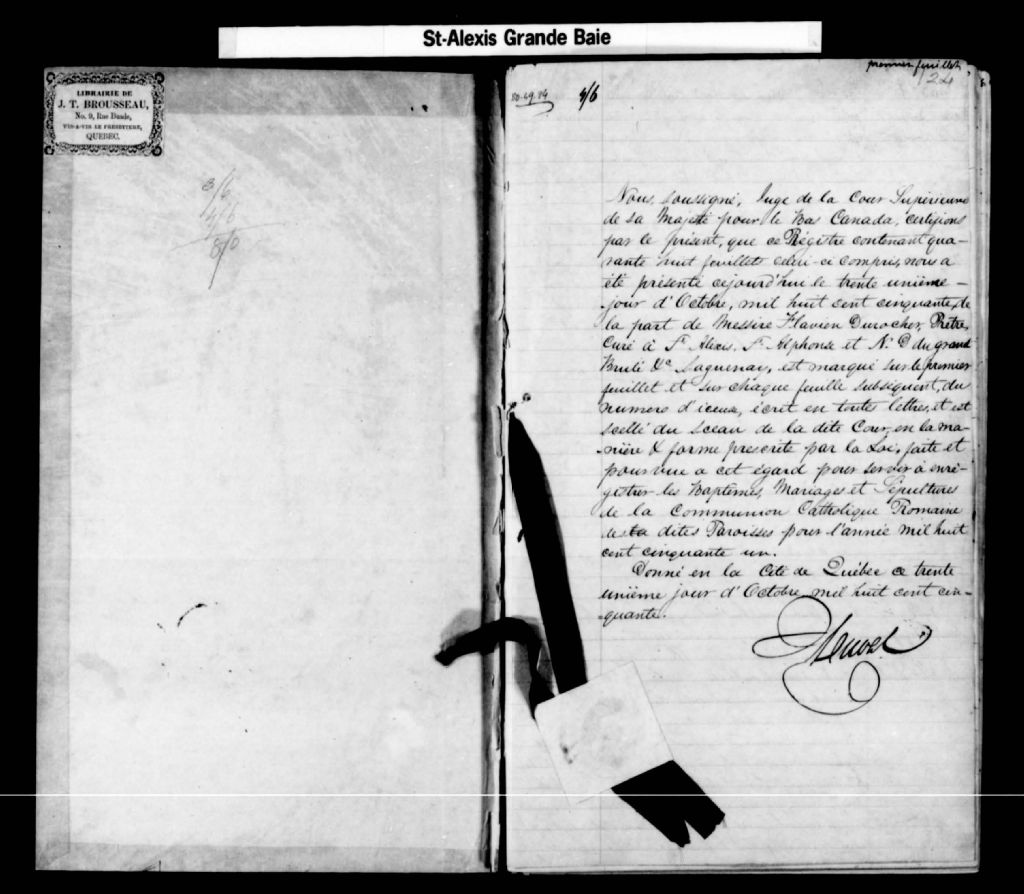 St-Alexis Grande Baie
LIBRAIRIE DE
J. T. BROUSSEAU,
No. 9, Rue Buade,
VIS-A-VIS LE PRESBYTERE,
QUEBEC.
3/6
4/6
8/0
premier feuillet
24
4/6
Nous, soussigné, Juge de la Cour Supérieure
de sa Majesté pour le Bas Canada, certifions
par le présent, que ce Régistre contenant qua-
rante huit feuillets celui-ci compris, nous a
été présenté cejourd'hui le trente unième
jour d'Octobre, mil huit cent cinquante, de
la part de Messire Flavien Durocher, Prêtre,
Curé à St Alexis, St Alphonse et N. D du grand
Brulé &c Saguenay, est marqué sur le premier
feuillet et sur chaque feuille subséquent, du
numero d'iceux, écrit en toutes lettres, et est
scellé du sceau de la dite Cour, en la ma-
nière & forme prescrite par la Loi, faite et
pourvue a cet égard pour servir à enré-
gistrer les Baptêmes, Mariages et Sépultures
de la Communion Catholique Romaine
des dites Paroisses pour l'année mil huit
cent cinquante un.
Donné en la Cité de Québec ce trente
unième jour d'Octobre mil huit cent cin-
quante.